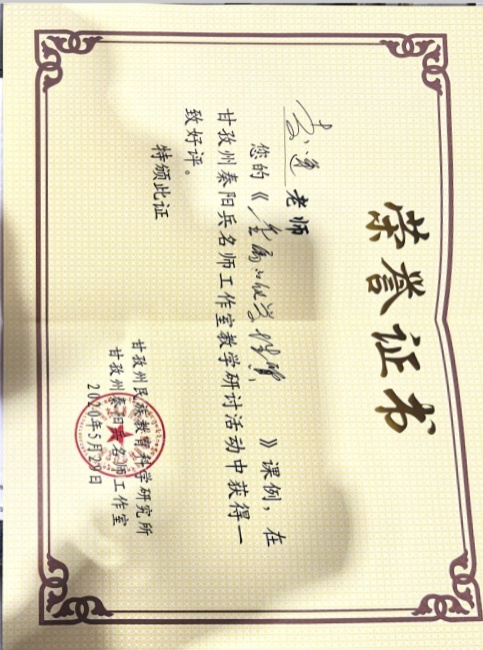 荣誉证书
老师
您的《金属的化学性质》课例，在
甘孜州秦阳兵名师工作室教学研讨活动中获得一
致好评。
特颁此证
甘孜州民族教育科学研究所
甘孜州秦阳兵名师工作室
2020年5月29日